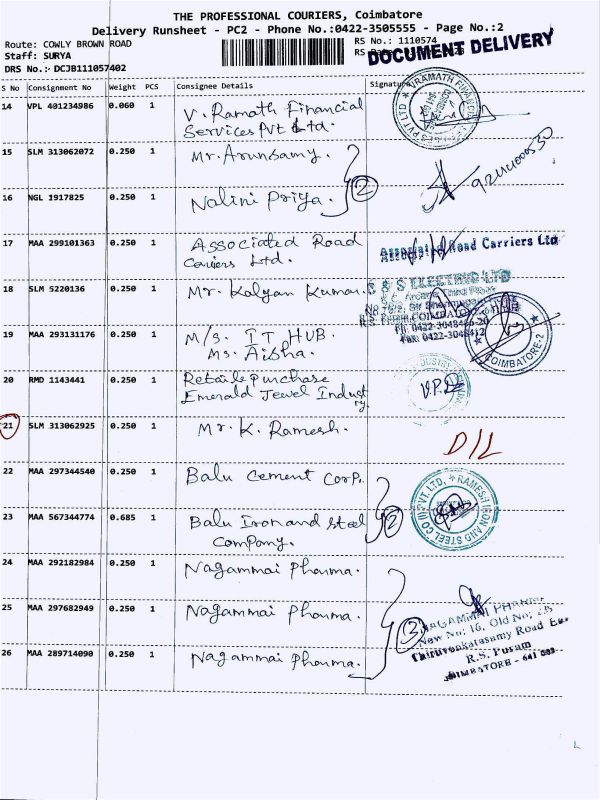 THE PROFESSIONAL COURIERS, Coimbatore
Delivery Runsheet - PC2 - Phone No.:0422-3505555 - Page No.:2
Route: COWLY BROWN ROAD
RS No.: 1110574
Staff: SURYA
RS
DOCUMENT DELIVERY
DRS No.:- DCJB111057402
S No Consignment No Weight PCS Consignee Details Signature
14 VPL 401234986 0.060 1 V. Ramath Financial
Services Pvt Ltd.
15 SLM 313062072 0.250 1 Mr. Arunsamy.
16 NGL 1917825 0.250 1 Nalini Priya. 2
17 MAA 299101363 0.250 1 Associated Road
Carriers Ltd.
Associated Road Carriers Ltd
18 SLM 5220136 0.250 1 Mr. Kalyan Kumar.
S & S ELECTRIC LTD
COIMBATORE-2
19 MAA 293131176 0.250 1 M/s. IT HUB.
Ms. Aisha.
20 RMD 1143441 0.250 1 Retaile purchase
Emerald Jewel Industry.
21 SLM 313062925 0.250 1 Mr. K. Ramesh. D/L
22 MAA 297344540 0.250 1 Balu Cement Corp.
23 MAA 567344774 0.685 1 Balu Iron and steel
company. 2
RAMESH IRON AND STEEL CO (I) PVT. LTD.
24 MAA 292182984 0.250 1 Nagammai Pharma.
25 MAA 297682949 0.250 1 Nagammai Pharma. 3
26 MAA 289714090 0.250 1 Nagammai Pharma.
NAGAMMAI PHARMA
New No: 16, Old No:
Thiruvenkatasamy Road
R.S. Puram
COIMBATORE - 641 002